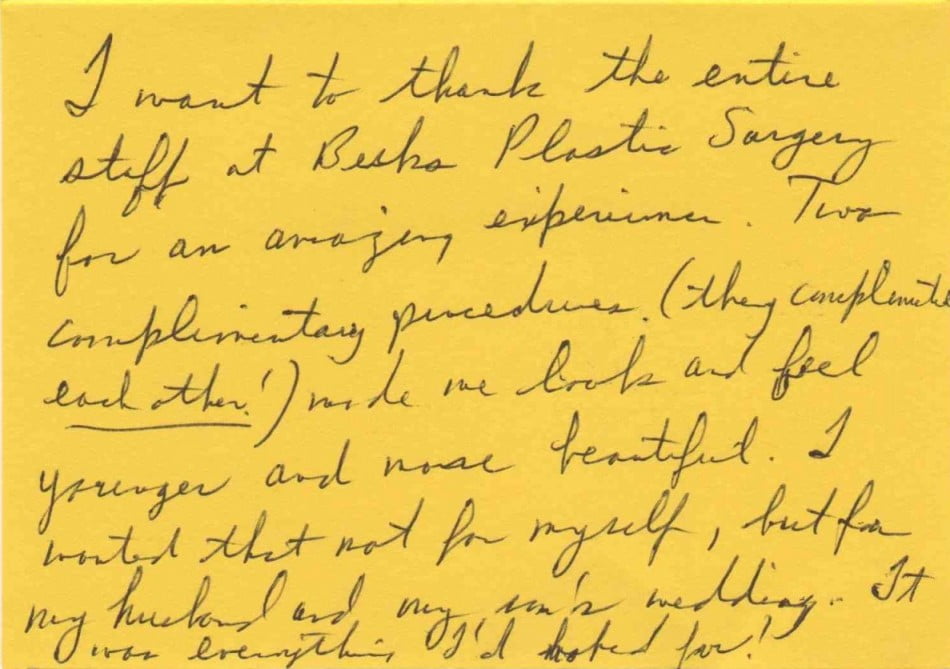 I want to thank the entire
staff at Beshs Plastic Surgery
for an amazing experience. Two
complimentary procedures. (they complimented
each other!) made me look and feel
younger and more beautiful. I
wanted that not for myself, but for
my husband and my son's wedding. It
was everything I'd hoped for!